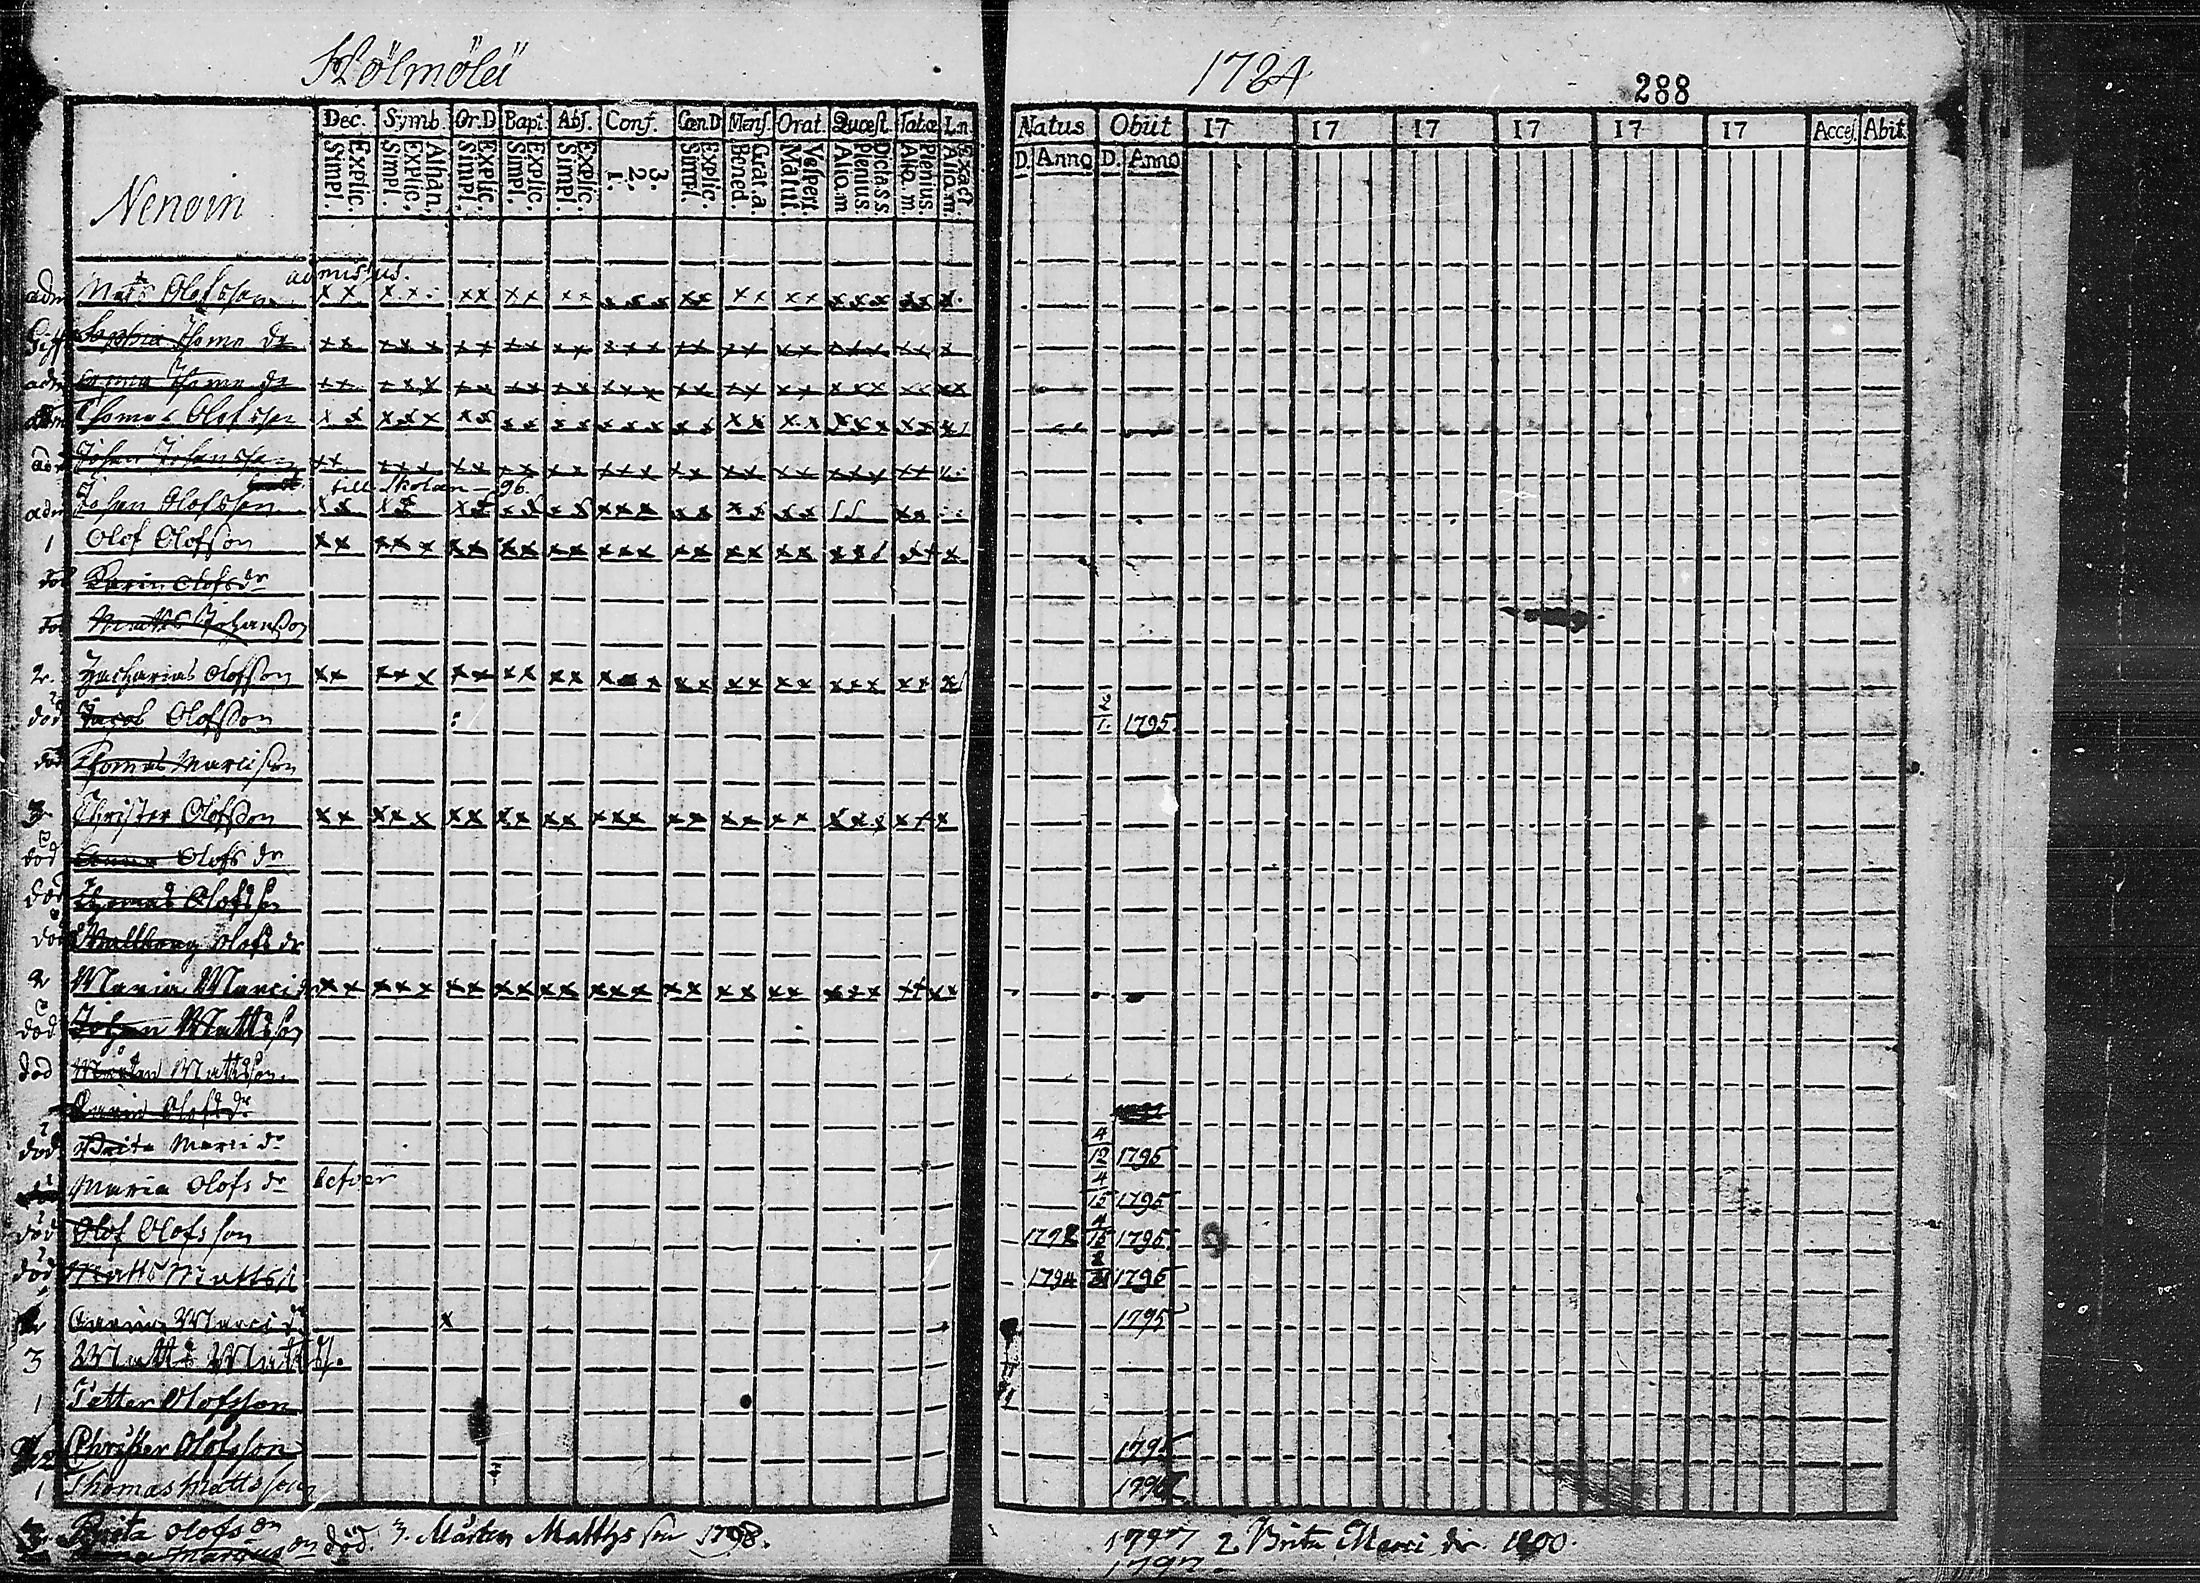 Hölmölä
1784
288
Dec. Symb. Or.D Bapt. Abs. Conf. Cœn.D Mens. Orat. Quæst. Tabæ Ln
Natus Obiit 17 17 17 17 17 17 Acces. Abit
Explic. Simpl. Athan. Explic. Simpl. Explic. Simpl. Explic. Simpl. Explic. Simpl. 3. 2. 1. Explic. Simpl. Grat. a. Bened. Vespert. Matut. Dicta s.s. plenius. Aliq. m Plenius. Aliq. m Exact. Aliq. m.
D. Anno D. Anno
Nenoin
admissus.
adm Mats Olofsson
Sophia Thomæ dr
adm Anna Thomæ dr
adm Thomas Olofsson
adm Johan Johansson
till Skolan 96.
adm Johan Olofsson
1 Olof Olofson
död Karin Olofsdr
död Matts Johanßon
2. Zacharias Olofson
död Jacob Olofsson 1795
död Thomas Marcisson
3. Christer Olofsson
död Anna Olofs dr
död Thomas Olofsson
död Wallborg Olofs dr
2 Maria Marci dr
död Johan Mattsson
död Mårten Mattsson
Carin Olofsdr
död Brita Marci dr 4/12 1795
Maria Olofs dr 4/15 1795
död Olof Olofsson 1792 4/15 1795
död Matts Matts s 1794 1795
Carin Marci dr 1795
3 Matts Matts s.
1 Petter Olofsson
2 Christer Olofsson 1795
1 Thomas Mattsson 1796
Brita Olofs dr död. 3. Mårten Matthsson 1798.
1797 2 Brita Marci dr. 1800.
1797